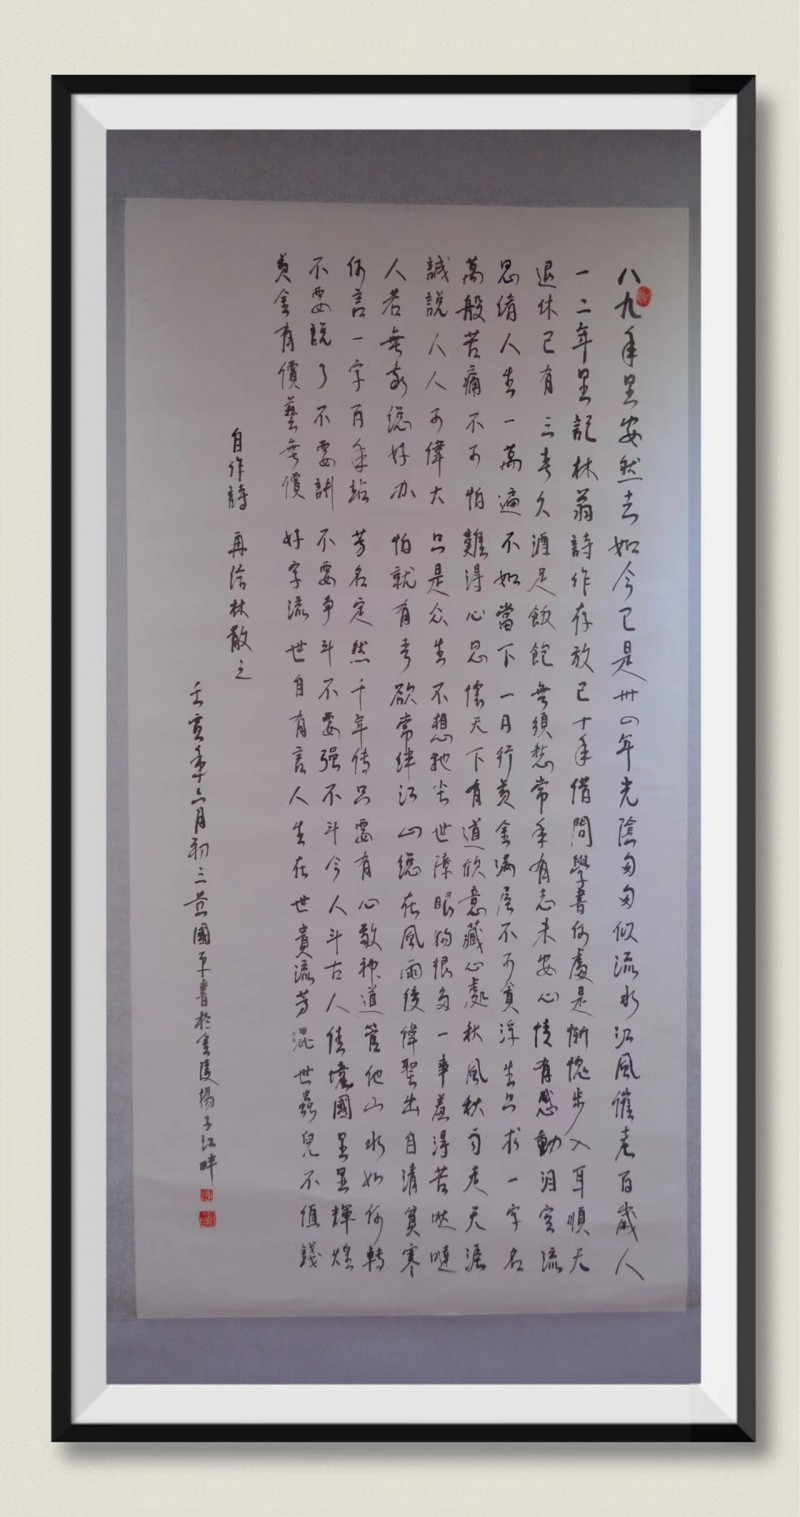 八九年里安然去如今已是卅四年光陰匆匆似流水江風催老百歲人
一二年里記林翁詩作存放已十年借問學書何處是慚愧步入耳順天
退休已有三春久涯足飲飽無須愁常年有志未安心情有感動泪空流
思緒人生一萬遍不如當下一日行黃金滿屋不可貪浮生只求一字名
萬般苦痛不可怕難得心思懷天下有道欣意藏心處秋風秋句走天涯
誠說人人可偉大只是众生不想抛尘世障眼物很多一事羞得苦哒哒
人若無求總好办怕就有青欲常绊江山總在風雨後偉聖出自清貧寒
何言一字百年跕芳名定然千年传只要有心敬神道管他山水如何轉
不要説了不要訓不要争斗不要强不斗今人斗古人佳境國里呈輝煌
黃金有價藝無價好字流世自有言人生在世貴流芳混世蟲兒不值錢
自作詩 再论林散之
壬寅年六月初三黄國平書於金陵揚子江畔